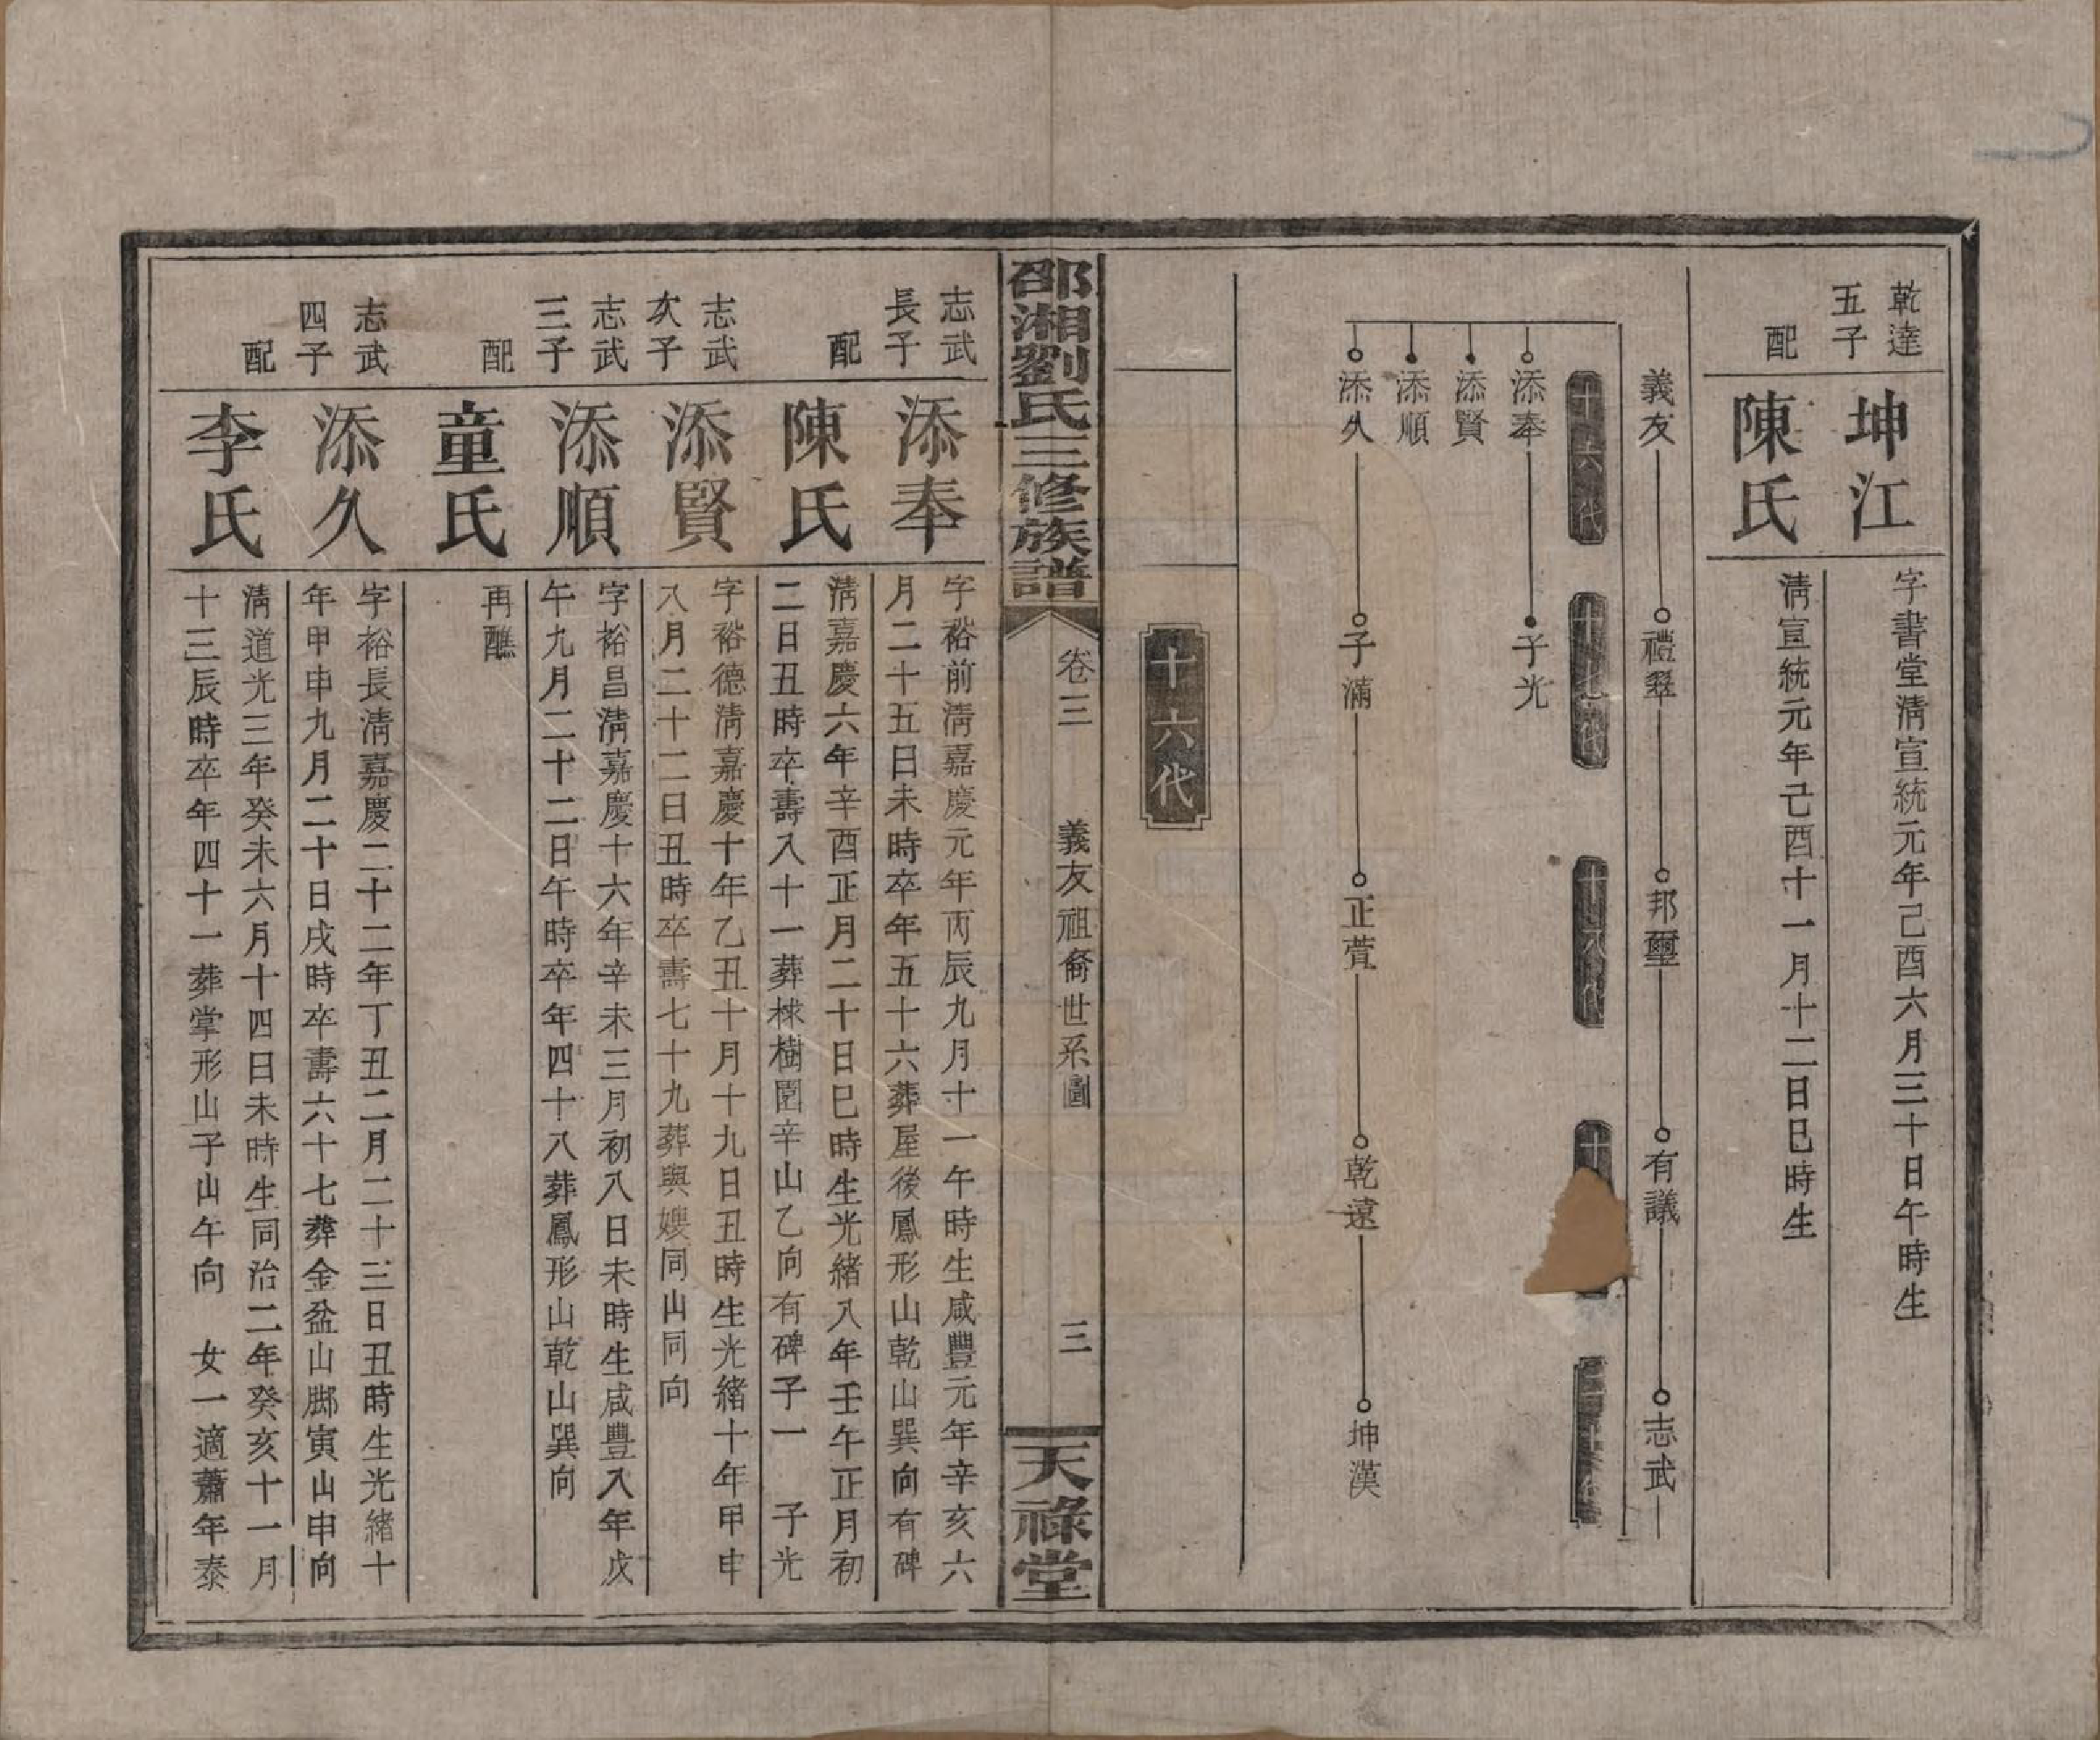 乾達
五子
坤江
字書堂淸宣統元年己酉六月三十日午時生
配
陳氏
淸宣統元年己酉十一月十二日巳時生
義友
禮翠
邦璽
有議
志武
十六代
十七代
十八代
十
添奉
子光
添賢
添順
添久
子滿
正萱
乾遠
坤漢
十六代
邵湘劉氏三修族譜
卷三
義友祖裔世系圖
三
天祿堂
志武
長子
添奉
字裕前淸嘉慶元年丙辰九月十一午時生咸豐元年辛亥六
月二十五日未時卒年五十六葬屋後鳳形山乾山巽向有碑
配
陳氏
淸嘉慶六年辛酉正月二十日巳時生光緒八年壬午正月初
二日丑時卒壽八十一葬梂樹園辛山乙向有碑子一 子光
志武
次子
添賢
字裕德淸嘉慶十年乙丑十月十九日丑時生光緒十年甲申
八月二十二日丑時卒壽七十九葬與嫂同山同向
志武
三子
添順
字裕昌淸嘉慶十六年辛未三月初八日未時生咸豐八年戊
午九月二十二日午時卒年四十八葬鳳形山乾山巽向
配
童氏
再醮
志武
四子
添久
字裕長淸嘉慶二十二年丁丑二月二十三日丑時生光緒十
年甲申九月二十日戌時卒壽六十七葬金盆山腳寅山申向
配
李氏
淸道光三年癸未六月十四日未時生同治二年癸亥十一月
十三辰時卒年四十一葬掌形山子山午向 女一適蕭年泰